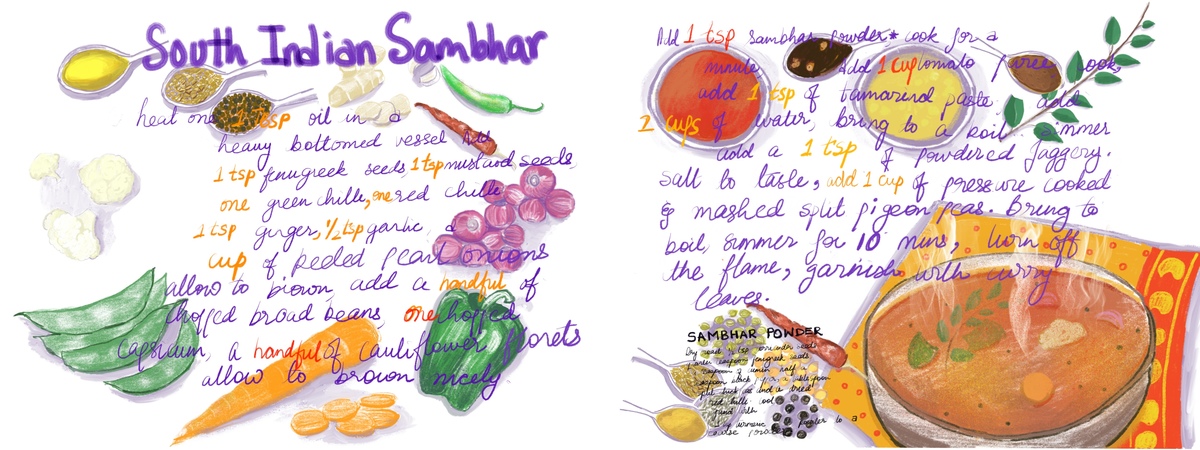 South Indian Sambhar
heat one 1 tsp oil in a
heavy bottomed vessel Add
1 tsp fenugreek seeds 1 tsp mustard seeds,
one green chille, one red chille
1 tsp ginger, 1/2 tsp garlic, a
cup of peeled pearl onions
allow to brown, add a handful of
chopped broad beans, one chopped
capsicum, a handful of cauliflower florets
allow to brown nicely.
Add 1 tsp Sambhar powder* cook for a
minute, Add 1 cup tomato puree cook,
add 1 tsp of tamarind paste add
2 cups of water, bring to a boil simmer
add a 1 tsp of powdered Jaggery.
Salt to taste, add 1 cup of pressure cooked
& mashed split pigeon peas. Bring to
boil simmer for 10 mins, turn off
the flame, garnish with curry
leaves.
SAMBHAR POWDER
Dry roast 1 tsp coriander seeds
fenugreek seeds
of cumin half a
black
red chille cool
grind with
turmeric powder to a